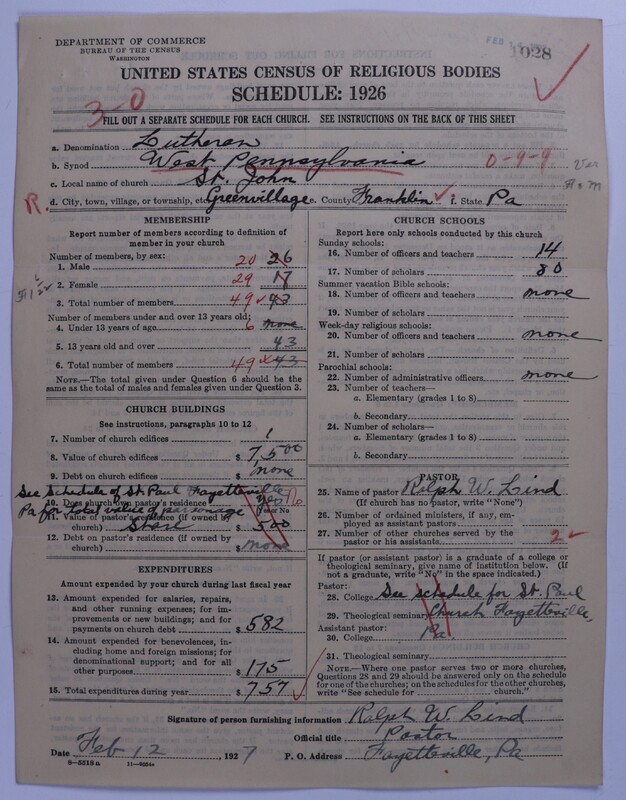 DEPARTMENT OF COMMERCE
BUREAU OF THE CENSUS
WASHINGTON
1028
UNITED STATES CENSUS OF RELIGIOUS BODIES
SCHEDULE: 1926
3-0
FILL OUT A SEPARATE SCHEDULE FOR EACH CHURCH. SEE INSTRUCTIONS ON THE BACK OF THIS SHEET
a. Denomination Lutheran
b. Synod West Pennsylvania 0-9-9
c. Local name of church St. John
R. d. City, town, village, or township, etc Greenvillage e. County Franklin f. State Pa
MEMBERSHIP
Report number of members according to definition of
member in your church
Number of members, by sex:
1. Male 20 26
2. Female 29 17
3. Total number of members 49 43
Number of members under and over 13 years old:
4. Under 13 years of age 6 none
5. 13 years old and over 43
6. Total number of members 49 43
NOTE.—The total given under Question 6 should be the
same as the total of males and females given under Question 3.
CHURCH BUILDINGS
See instructions, paragraphs 10 to 12
7. Number of church edifices 1
8. Value of church edifices $ 7,500
9. Debt on church edifices $ none
See Schedule of St. Paul Fayetteville
10. Does church own pastor's residence yes
Yes or No
Pa for total value of parsonage
11. Value of pastor's residence (if owned by
church) share $ 500
12. Debt on pastor's residence (if owned by
church) $ none
EXPENDITURES
Amount expended by your church during last fiscal year
13. Amount expended for salaries, repairs,
and other running expenses; for im-
provements or new buildings; and for
payments on church debt $ 582
14. Amount expended for benevolences, in-
cluding home and foreign missions; for
denominational support; and for all
other purposes $ 175
15. Total expenditures during year $ 757
CHURCH SCHOOLS
Report here only schools conducted by this church
Sunday schools:
16. Number of officers and teachers 14
17. Number of scholars 80
Summer vacation Bible schools:
18. Number of officers and teachers none
19. Number of scholars
Week-day religious schools:
20. Number of officers and teachers none
21. Number of scholars
Parochial schools:
22. Number of administrative officers none
23. Number of teachers—
a. Elementary (grades 1 to 8)
b. Secondary
24. Number of scholars—
a. Elementary (grades 1 to 8)
b. Secondary
PASTOR
25. Name of pastor Ralph W. Lind
(If church has no pastor, write "None")
26. Number of ordained ministers, if any, em-
ployed as assistant pastors
27. Number of other churches served by the
pastor or his assistants 2
If pastor (or assistant pastor) is a graduate of a college or
theological seminary, give name of Institution below. (If
not a graduate, write "No" in the space indicated.)
Pastor:
28. College See schedule for St. Paul
29. Theological seminary Church Fayetteville,
Assistant pastor:
30. College Pa.
31. Theological seminary
NOTE.—Where one pastor serves two or more churches,
Questions 28 and 29 should be answered only on the schedule
for one of the churches; on the schedules for the other churches,
write "See schedule for church."
Signature of person furnishing information Ralph W. Lind
Official title Pastor
Date Feb 12, 1927 P. O. Address Fayetteville, Pa
8-5519a 11-9054a